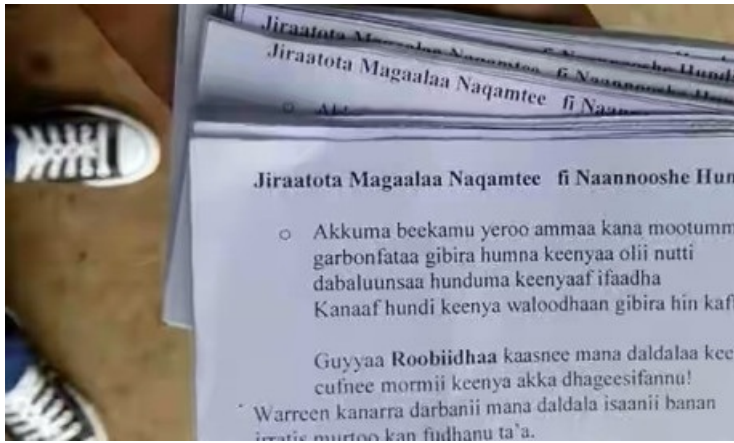 Jiraatota
Jiraatota Magaalaa Naqamtee fi
Jiraatota Magaalaa Naqamtee fi Naannooshe
Akkuma beekamu yeroo ammaa kana
garbonfataa gibira humna keenyaa olii nutti
dabaluunsaa hunduma keenyaaf ifaadha
Kanaaf hundi keenya waloodhaan gibira hin
Guyyaa Roobiidhaa kaasnee mana daldalaa
cufnee mormii keenya akka dhageesifannu!
Warreen kanarra darbanii mana daldala isaanii banan
irratis murtoo kan fudhanu ta`a.